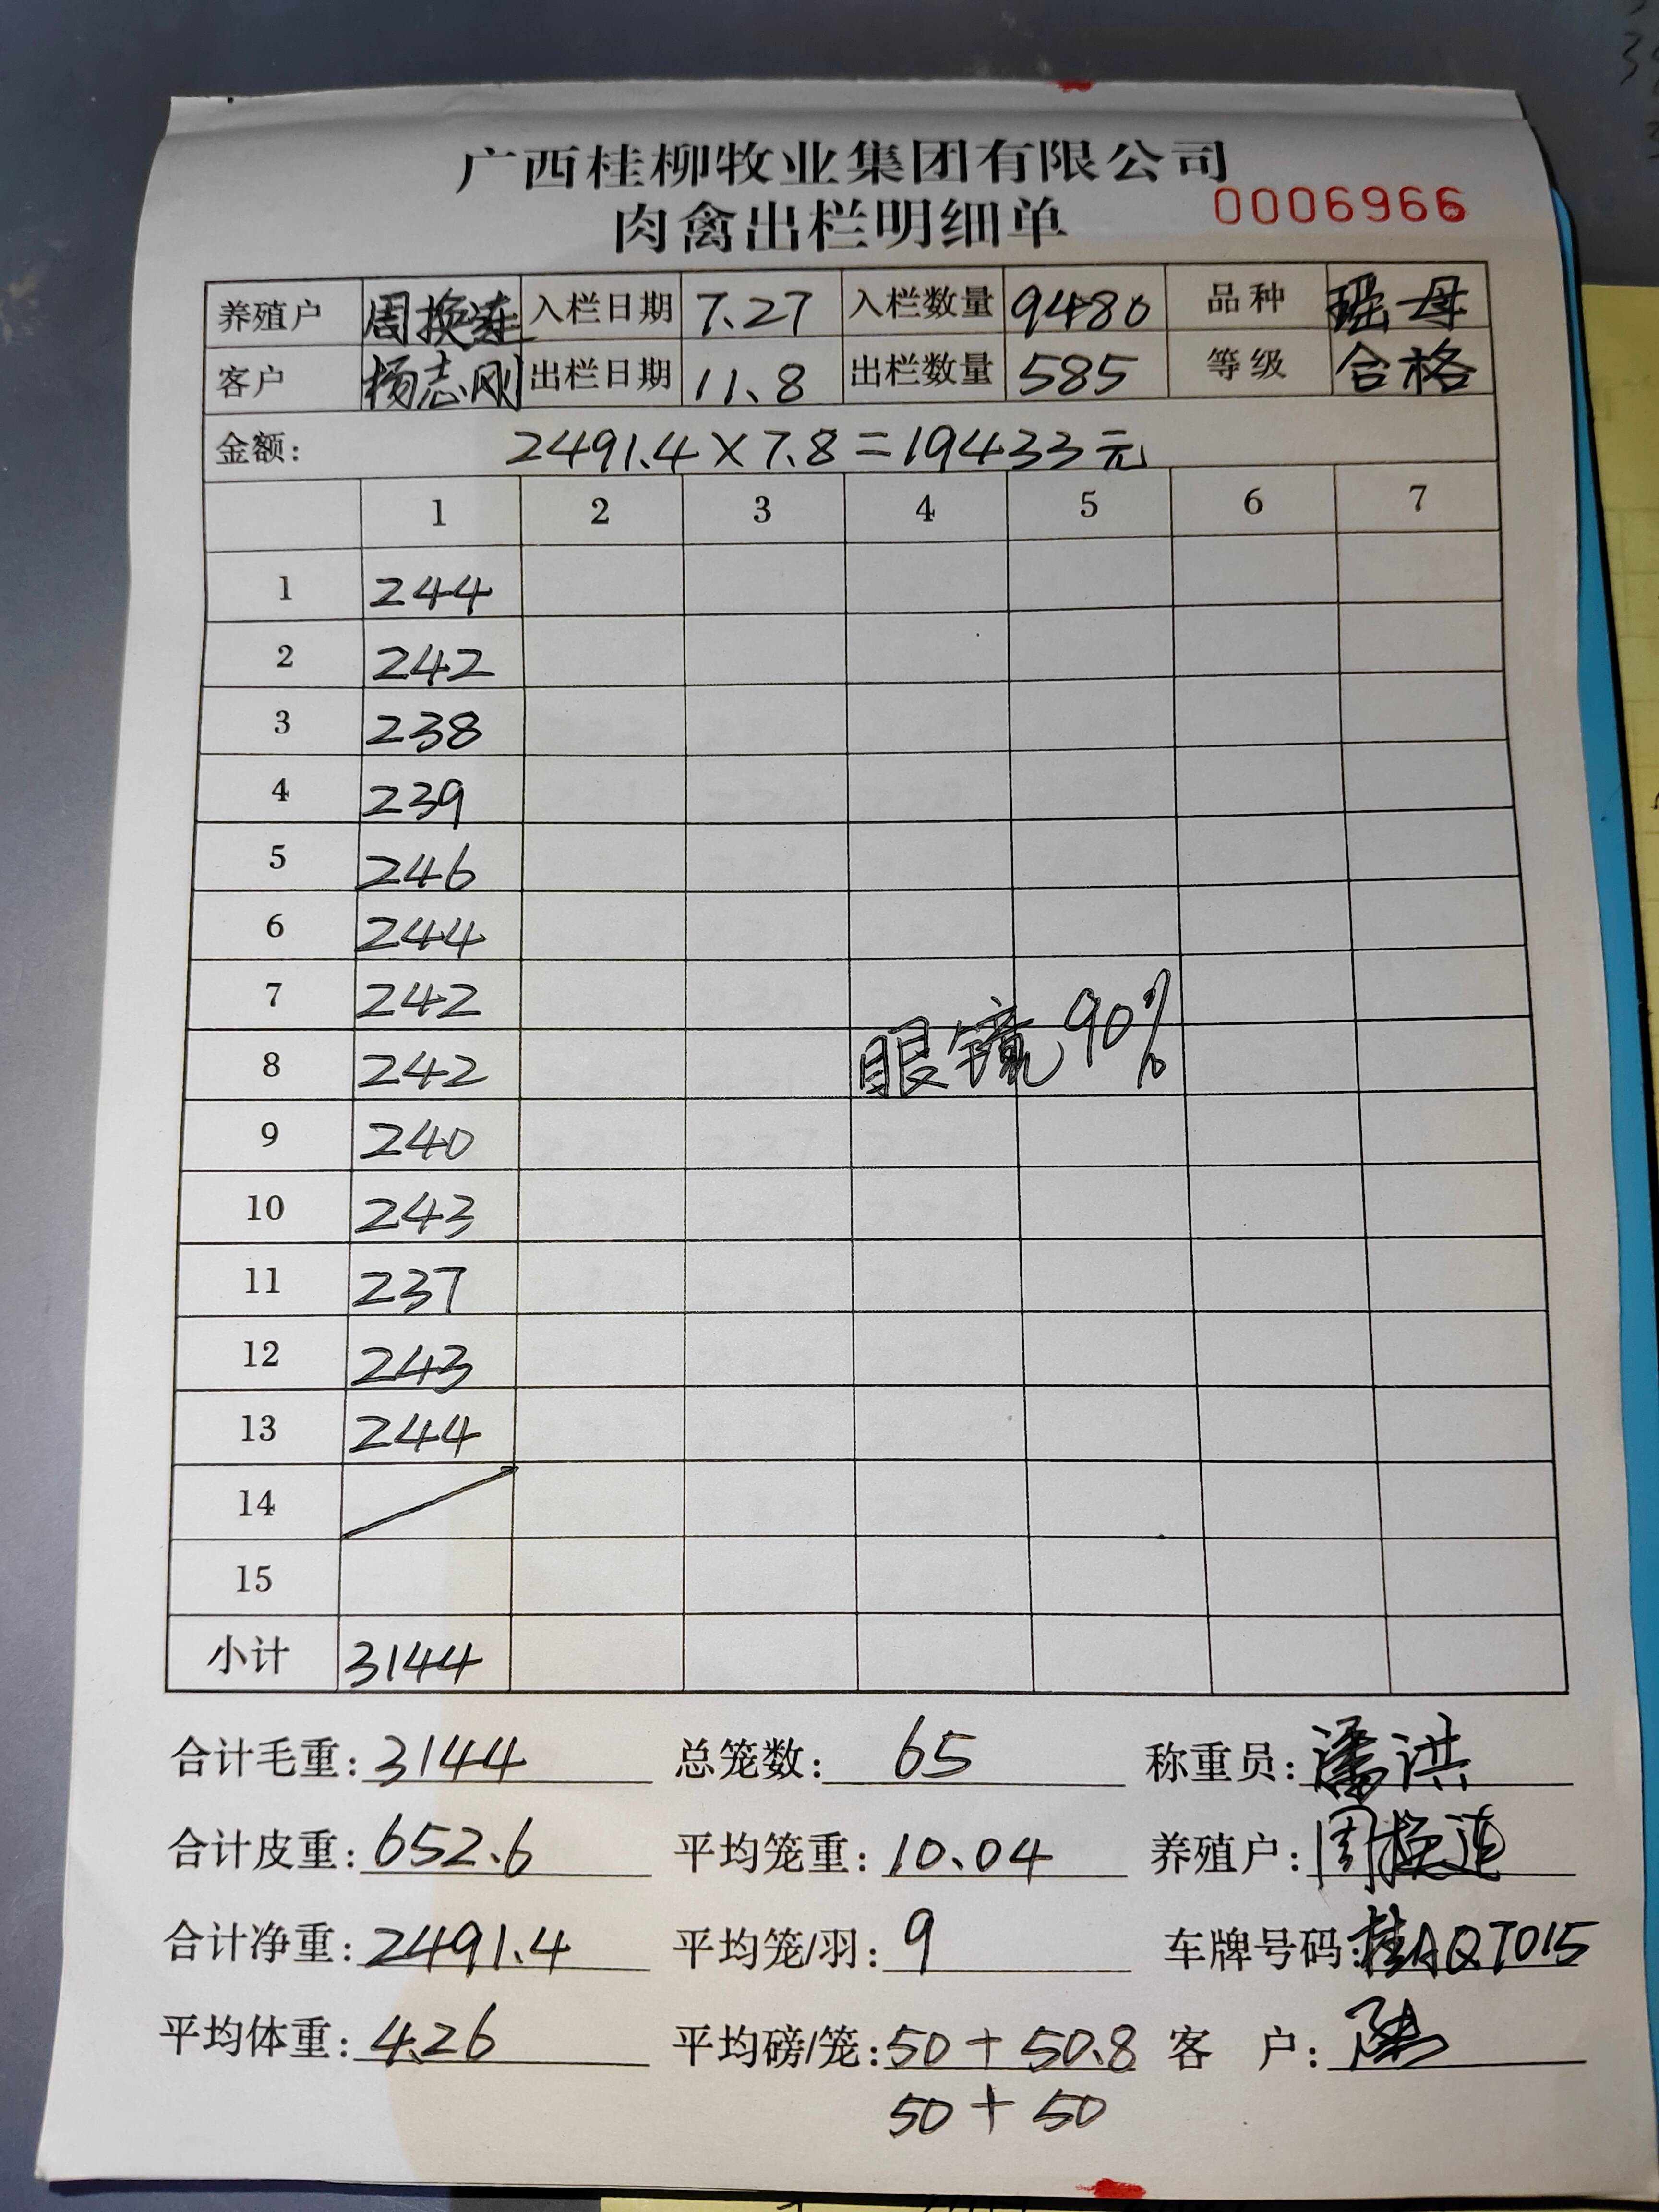 广西桂柳牧业集团有限公司
肉禽出栏明细单 0006966
养殖户 周换连 入栏日期 7.27 入栏数量 9480 品种 瑶母
客户 杨志刚 出栏日期 11.8 出栏数量 585 等级 合格
金额: 2491.4×7.8=19433元
1 2 3 4 5 6 7
1 244
2 242
3 238
4 239
5 246
6 244
7 242
8 242 眼镜90%
9 240
10 243
11 237
12 243
13 244
14
15
小计 3144
合计毛重: 3144 总笼数: 65 称重员: 潘洪
合计皮重: 652.6 平均笼重: 10.04 养殖户: 周换连
合计净重: 2491.4 平均笼/羽: 9 车牌号码: 桂AQT015
平均体重: 4.26 平均磅/笼: 50+50.8 客 户:
50+50